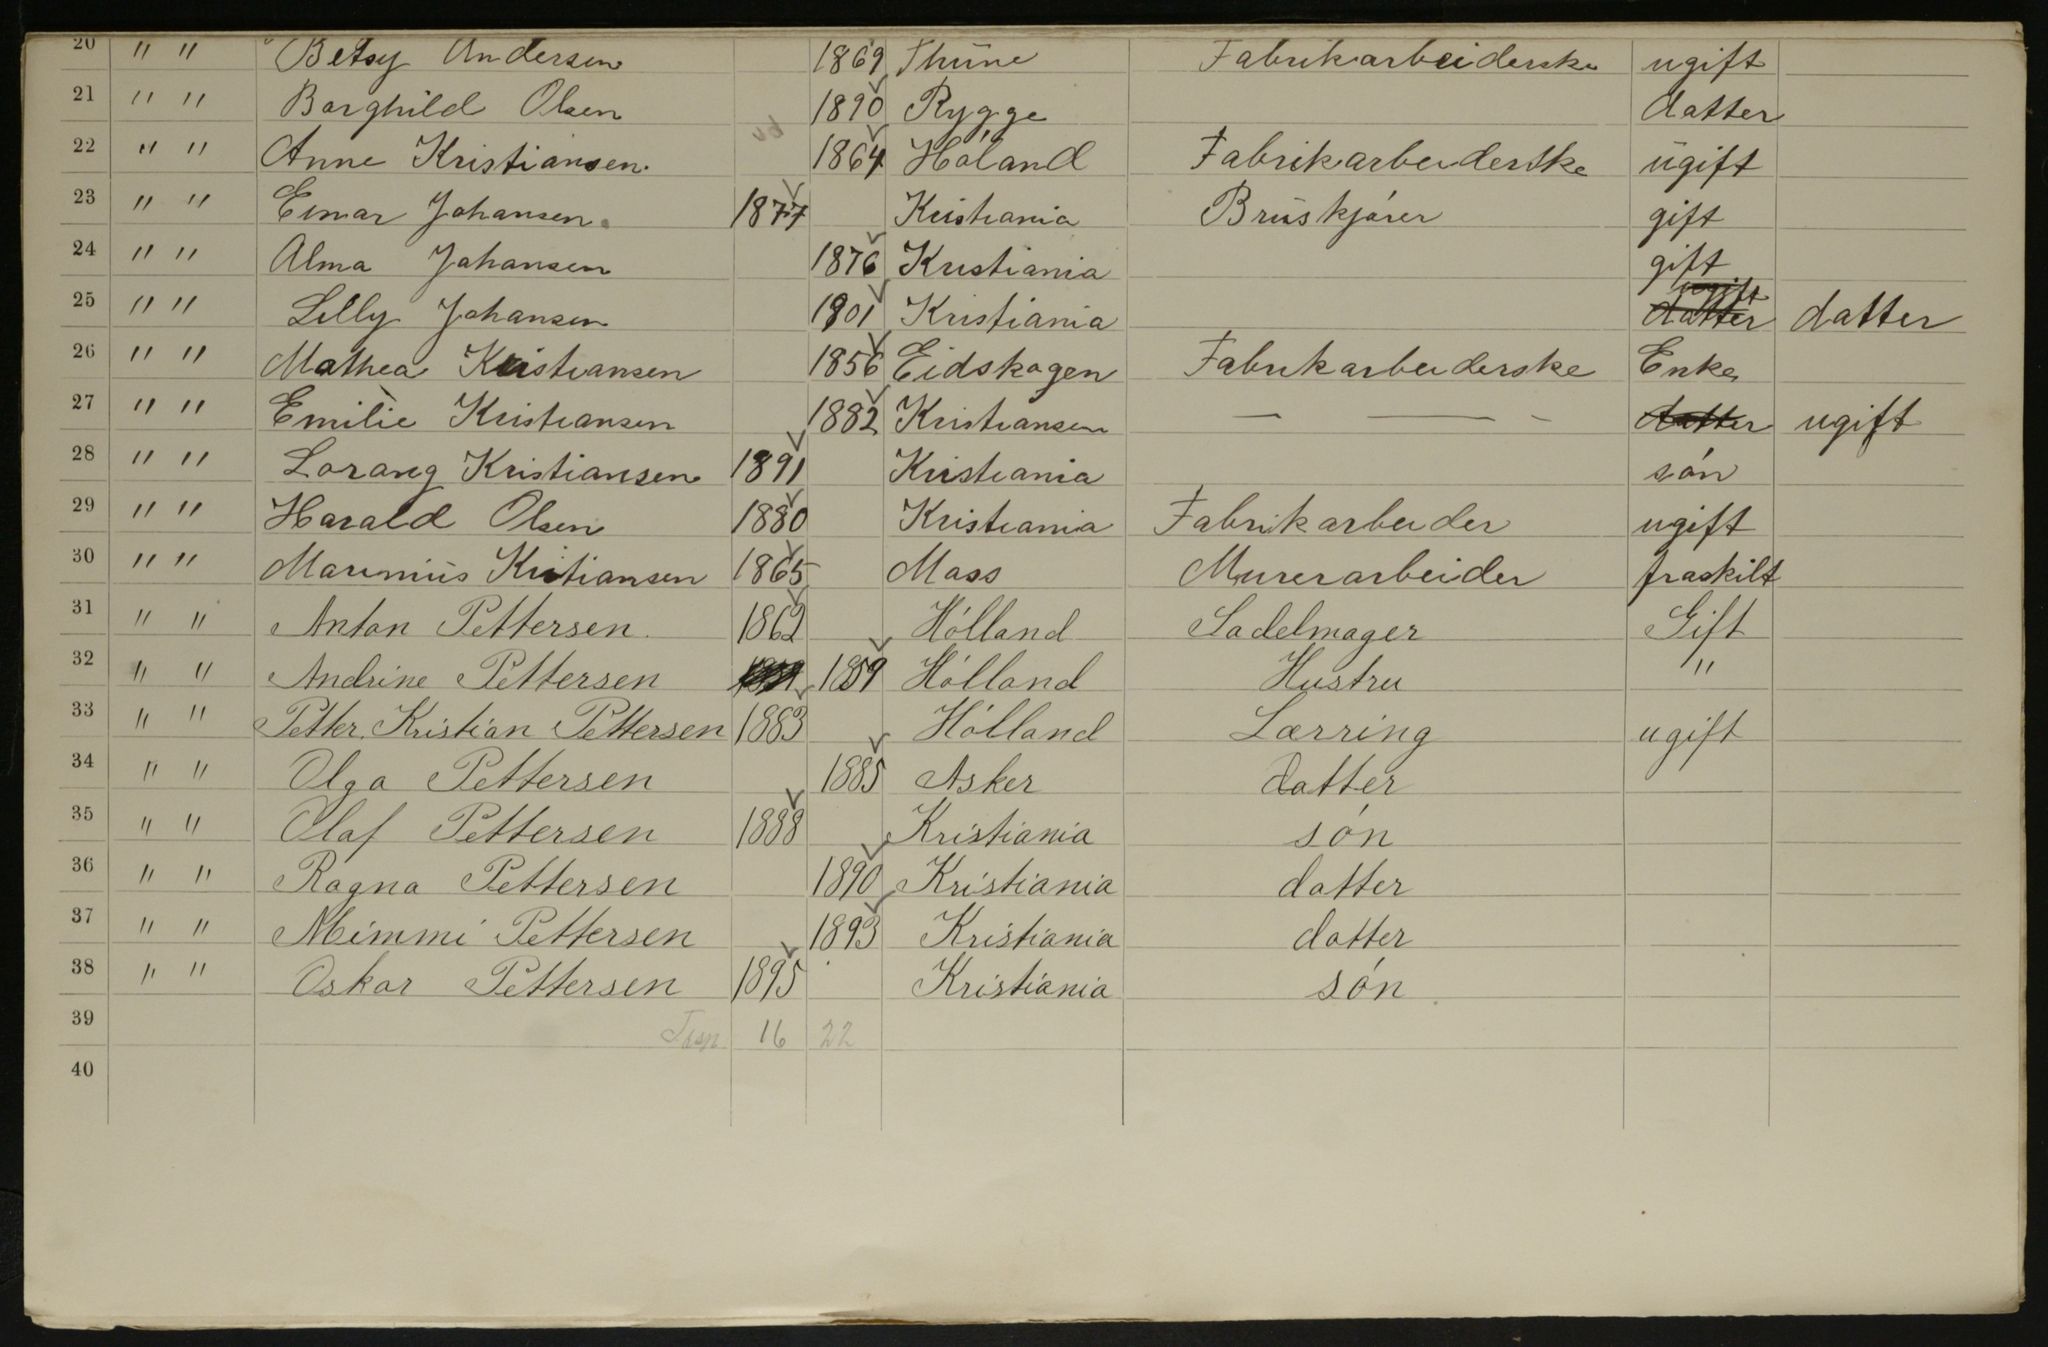 20 " " Betsy Andersen 1869 Thune Fabrikarbeiderske ugift
21 " " Borghild Olsen 1890 Rygge datter
22 " " Anne Kristiansen 1864 Hóland Fabrikarbeiderske ugift
23 " " Einar Johansen 1877 Kristiania Bruskjórer gift
24 " " Alma Johansen 1876 Kristiania gift
25 " " Lilly Johansen 1901 Kristiania datter ugift datter
26 " " Mathea Kristiansen 1856 Eidskogen Fabrikarbeiderske Enke
27 " " Emilie Kristiansen 1882 Kristiansen — — - datter ugift
28 " " Lorang Kristiansen 1891 Kristiania són
29 " " Harald Olsen 1880 Kristiania Fabrikarbeider ugift
30 " " Marinius Kristiansen 1865 Mass Murerarbeider fraskilt
31 " " Anton Pettersen 1862 Hólland Sadelmager Gift
32 " " Andrine Pettersen 1859 Hólland Hustru "
33 " " Petter Kristian Pettersen 1883 Hólland Lærring ugift
34 " " Olga Pettersen 1885 Asker datter
35 " " Olaf Pettersen 1888 Kristiania són
36 " " Ragna Pettersen 1890 Kristiania datter
37 " " Mimmi Pettersen 1893 Kristiania datter
38 " " Oskar Pettersen 1895 Kristiania són
39 16 22
40